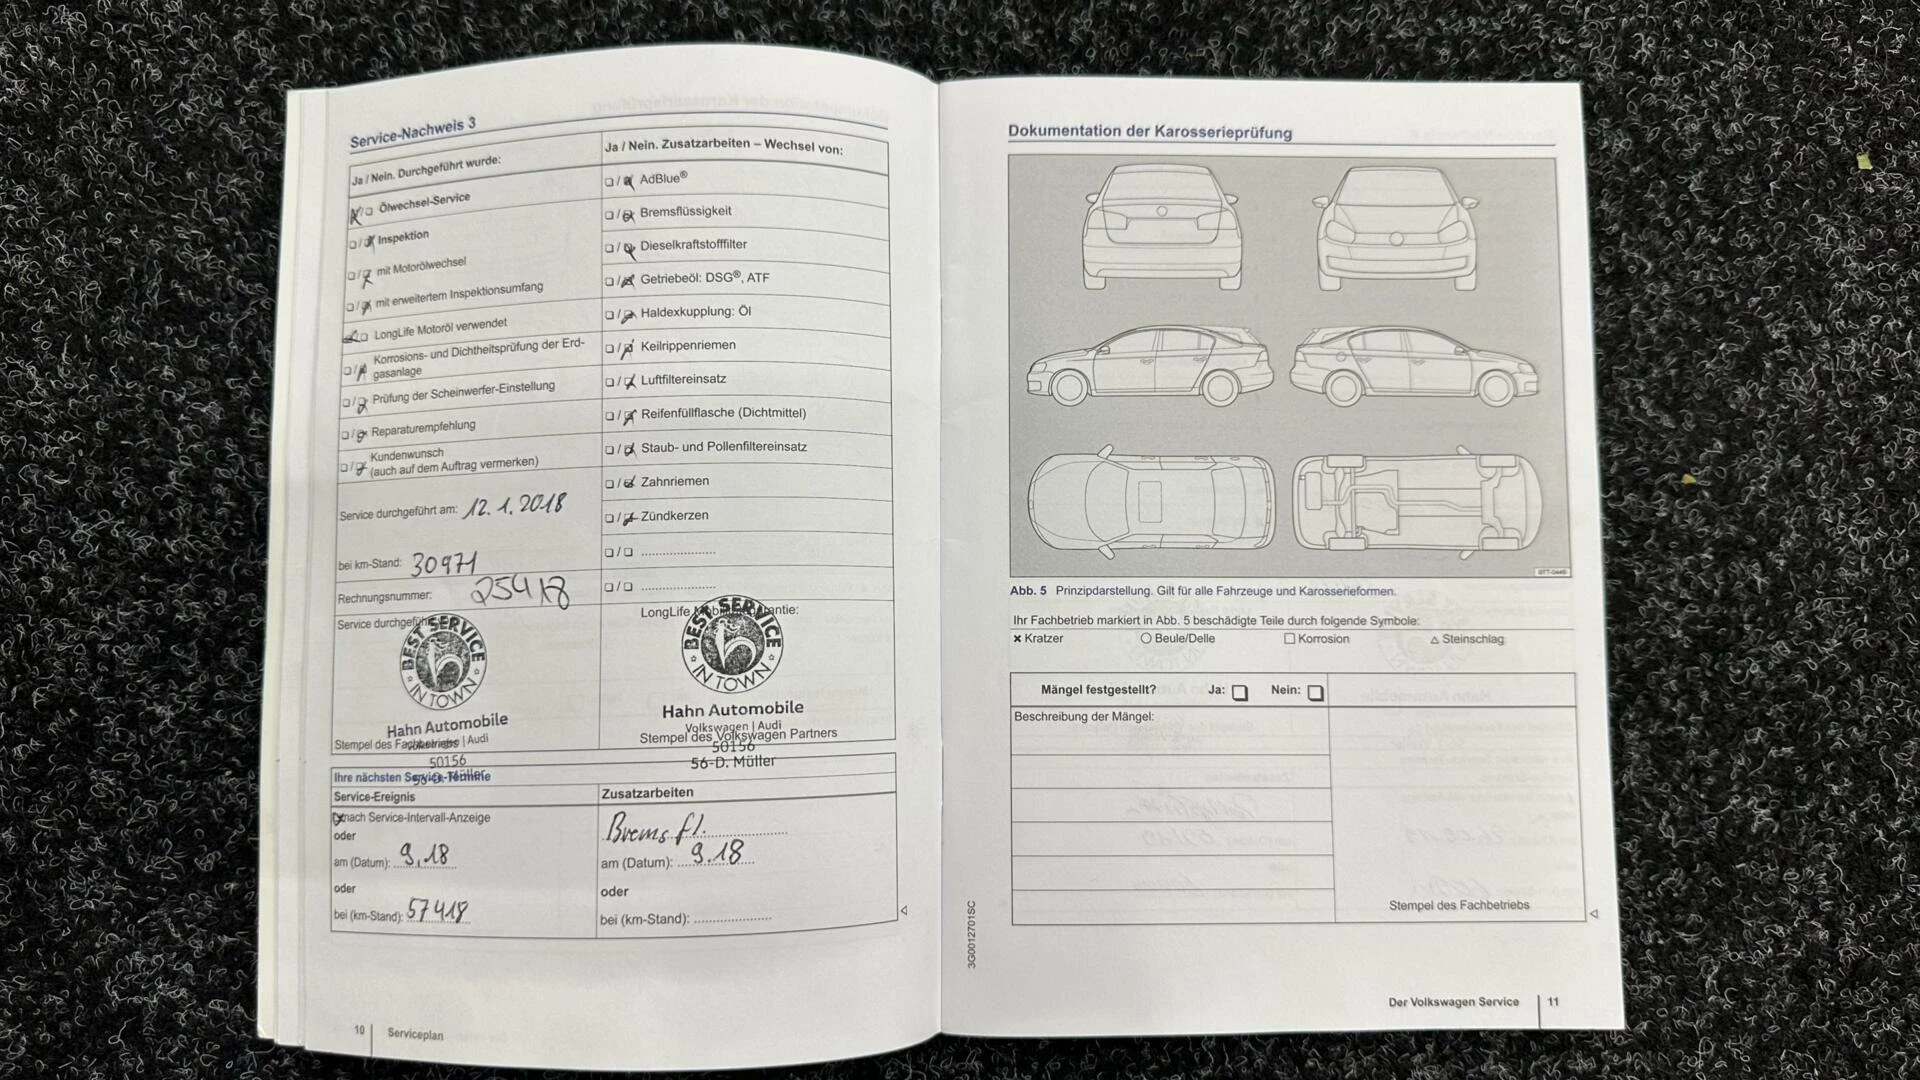 Service-Nachweis 3
Ja / Nein. Durchgeführt wurde:
Ölwechsel-Service
Inspektion
mit Motorölwechsel
mit erweitertem Inspektionsumfang
LongLife Motoröl verwendet
Korrosions- und Dichtheitsprüfung der Erd-
gasanlage
Prüfung der Scheinwerfer-Einstellung
Reparaturempfehlung
Kundenwunsch
(auch auf dem Auftrag vermerken)
Service durchgeführt am: 12.1.2018
bei km-Stand: 30971
Rechnungsnummer:
Service durchgeführt
BEST SERVICE
IN TOWN
Hahn Automobile
Volkswagen | Audi
Stempel des Fachbetriebs
50156
56-D. Müller
Ja / Nein. Zusatzarbeiten – Wechsel von:
AdBlue®
Bremsflüssigkeit
Dieselkraftstofffilter
Getriebeöl: DSG®, ATF
Haldexkupplung: Öl
Keilrippenriemen
Luftfiltereinsatz
Reifenfüllflasche (Dichtmittel)
Staub- und Pollenfiltereinsatz
Zahnriemen
Zündkerzen
LongLife Mobilitätsgarantie:
BEST SERVICE
IN TOWN
Hahn Automobile
Volkswagen | Audi
Stempel des Volkswagen Partners
50156
56-D. Müller
Ihre nächsten Service-Termine
Service-Ereignis
nach Service-Intervall-Anzeige
oder
am (Datum): 9.18
oder
bei (km-Stand): 57418
Zusatzarbeiten
Bremsfl.
am (Datum): 9.18
oder
bei (km-Stand):
10 Serviceplan
Dokumentation der Karosserieprüfung
BTT-0449
Abb. 5 Prinzipdarstellung. Gilt für alle Fahrzeuge und Karosserieformen.
Ihr Fachbetrieb markiert in Abb. 5 beschädigte Teile durch folgende Symbole:
Kratzer Beule/Delle Korrosion Steinschlag
Mängel festgestellt? Ja: Nein:
Beschreibung der Mängel:
Stempel des Fachbetriebs
3G0012701SC
Der Volkswagen Service 11